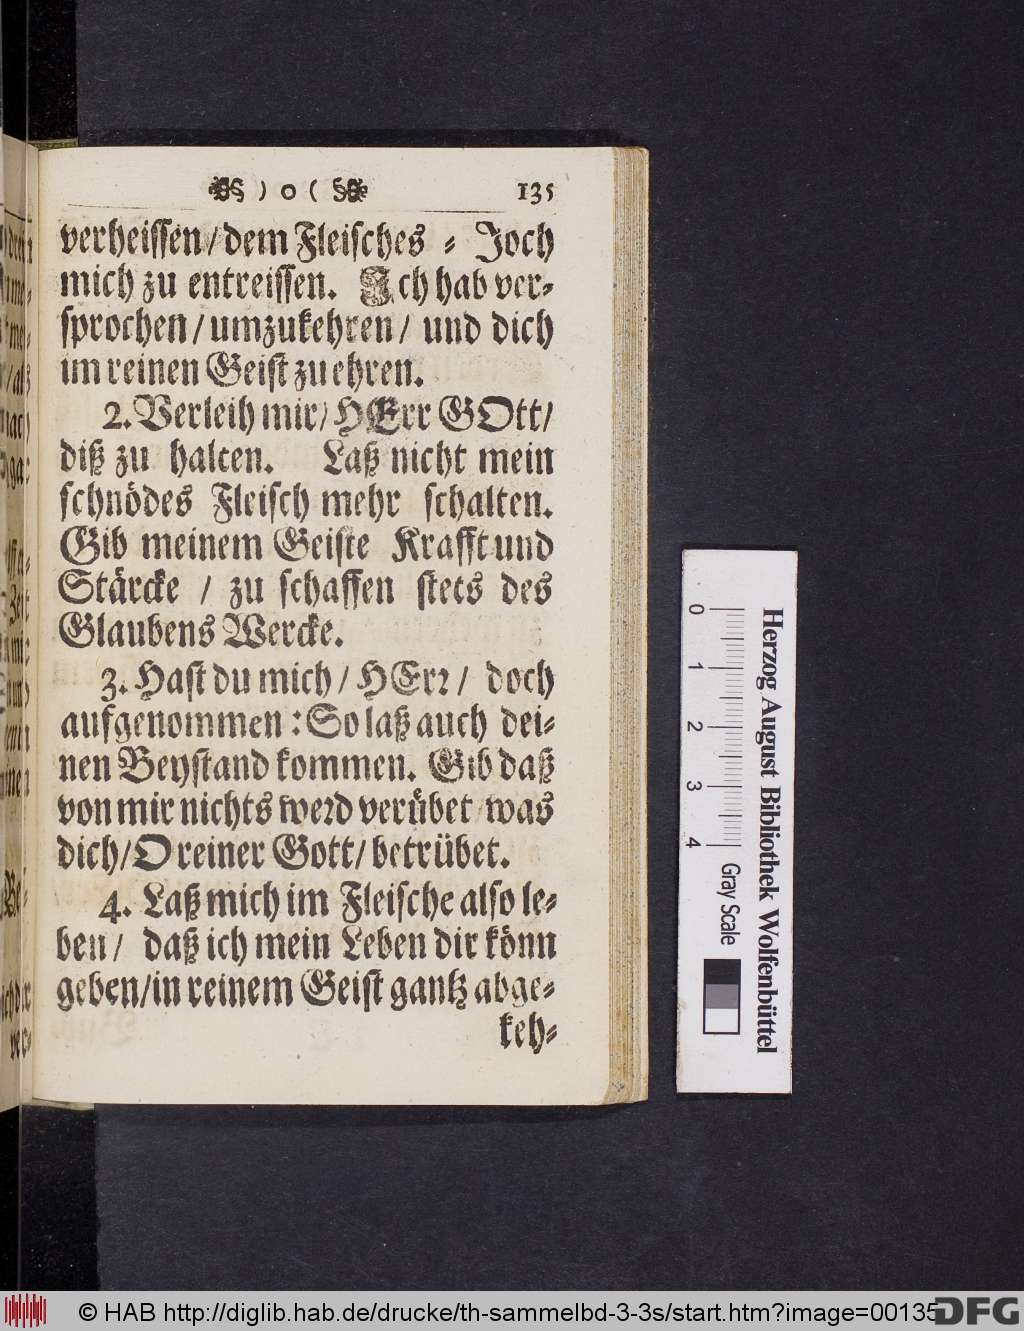 ) o ( 135
verheissen/dem Fleisches = Joch
mich zu entreissen. Ich hab ver=
sprochen/umzukehren/ und dich
im reinen Geist zu ehren.
2. Verleih mir/ HErr GOtt/
diß zu halten. Laß nicht mein
schnödes Fleisch mehr schalten.
Gib meinem Geiste Krafft und
Stärcke / zu schaffen stets des
Glaubens Wercke.
3. Hast du mich/ HErr/ doch
aufgenommen: So laß auch dei=
nen Beystand kommen. Gib daß
von mir nichts werd verübet/was
dich/O reiner Gott/betrübet.
4. Laß mich im Fleische also le=
ben/ daß ich mein Leben dir könn
geben/in reinem Geist gantz abge=
keh=
Herzog August Bibliothek Wolfenbüttel
0 1 2 3 4 Gray Scale
© HAB http://diglib.hab.de/drucke/th-sammelbd-3-3s/start.htm?image=00135
DFG